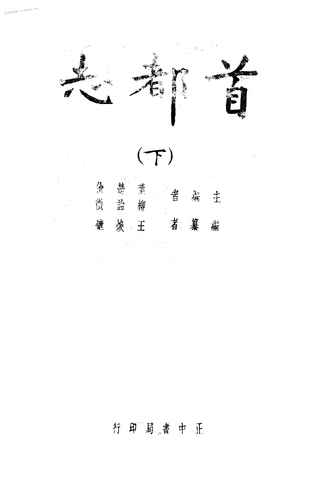 首都志
(下)
主編者 葉楚傖
柳詒徵
編纂者 王煥鑣
正中書局印行